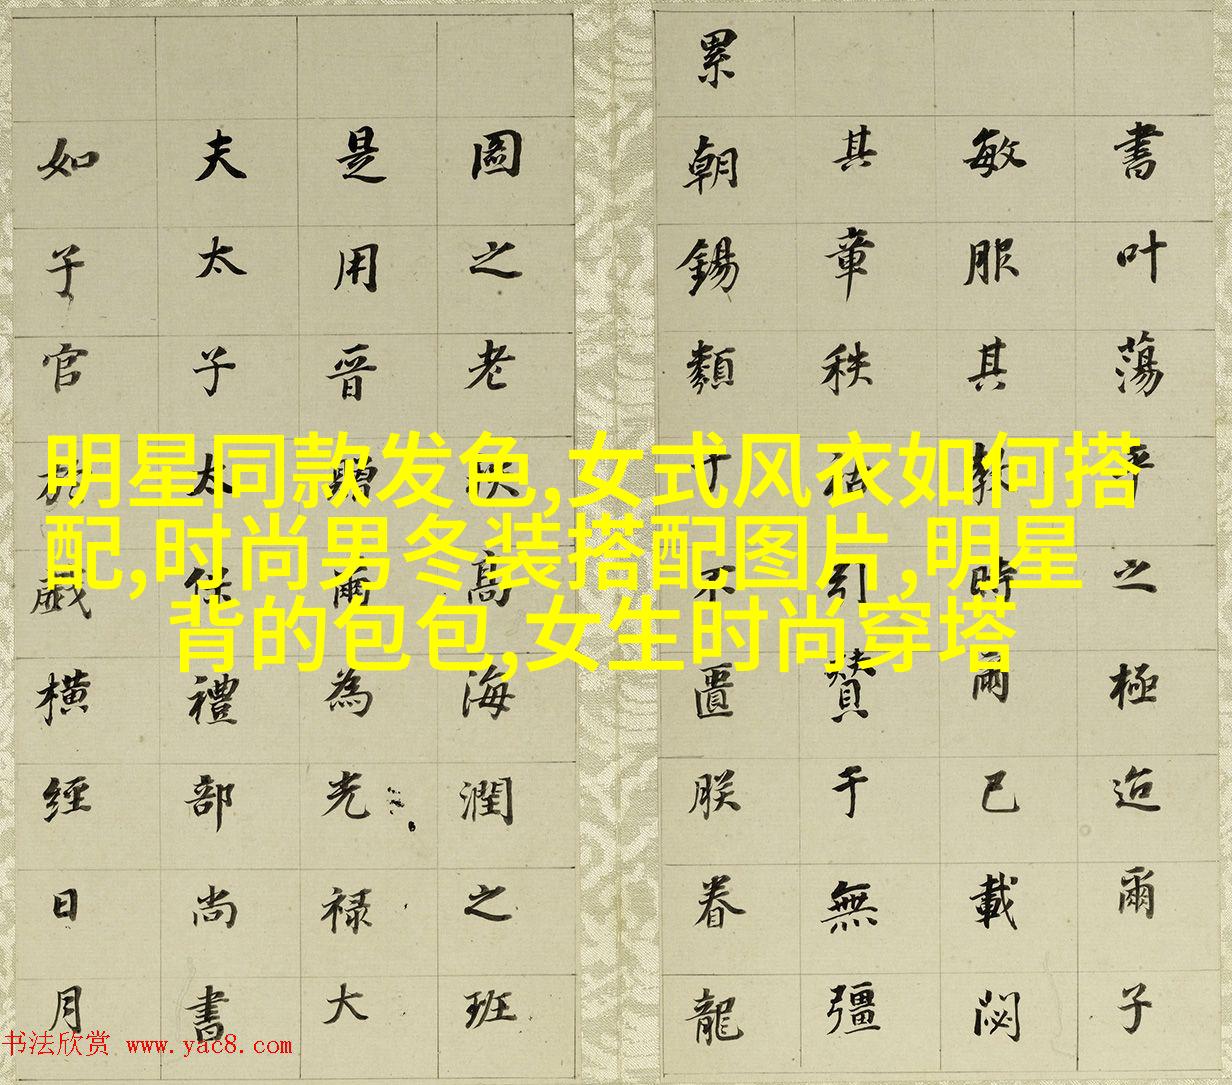 明星同款发色,女式风衣如何搭
配,时尚男冬装搭配图片,明星
背的包包,女生时尚穿塔
書叶蕩平之極迨爾子
敏服其時爾已載閟
其章秩引贊于無彊
累朝錫類不匱朕眷龍
圖之老秩高海潤之班
是用晉贈爾為光禄大
夫太子太保禮部尚書
如子官於戲橫經日月
书法欣赏 www.yac8.com